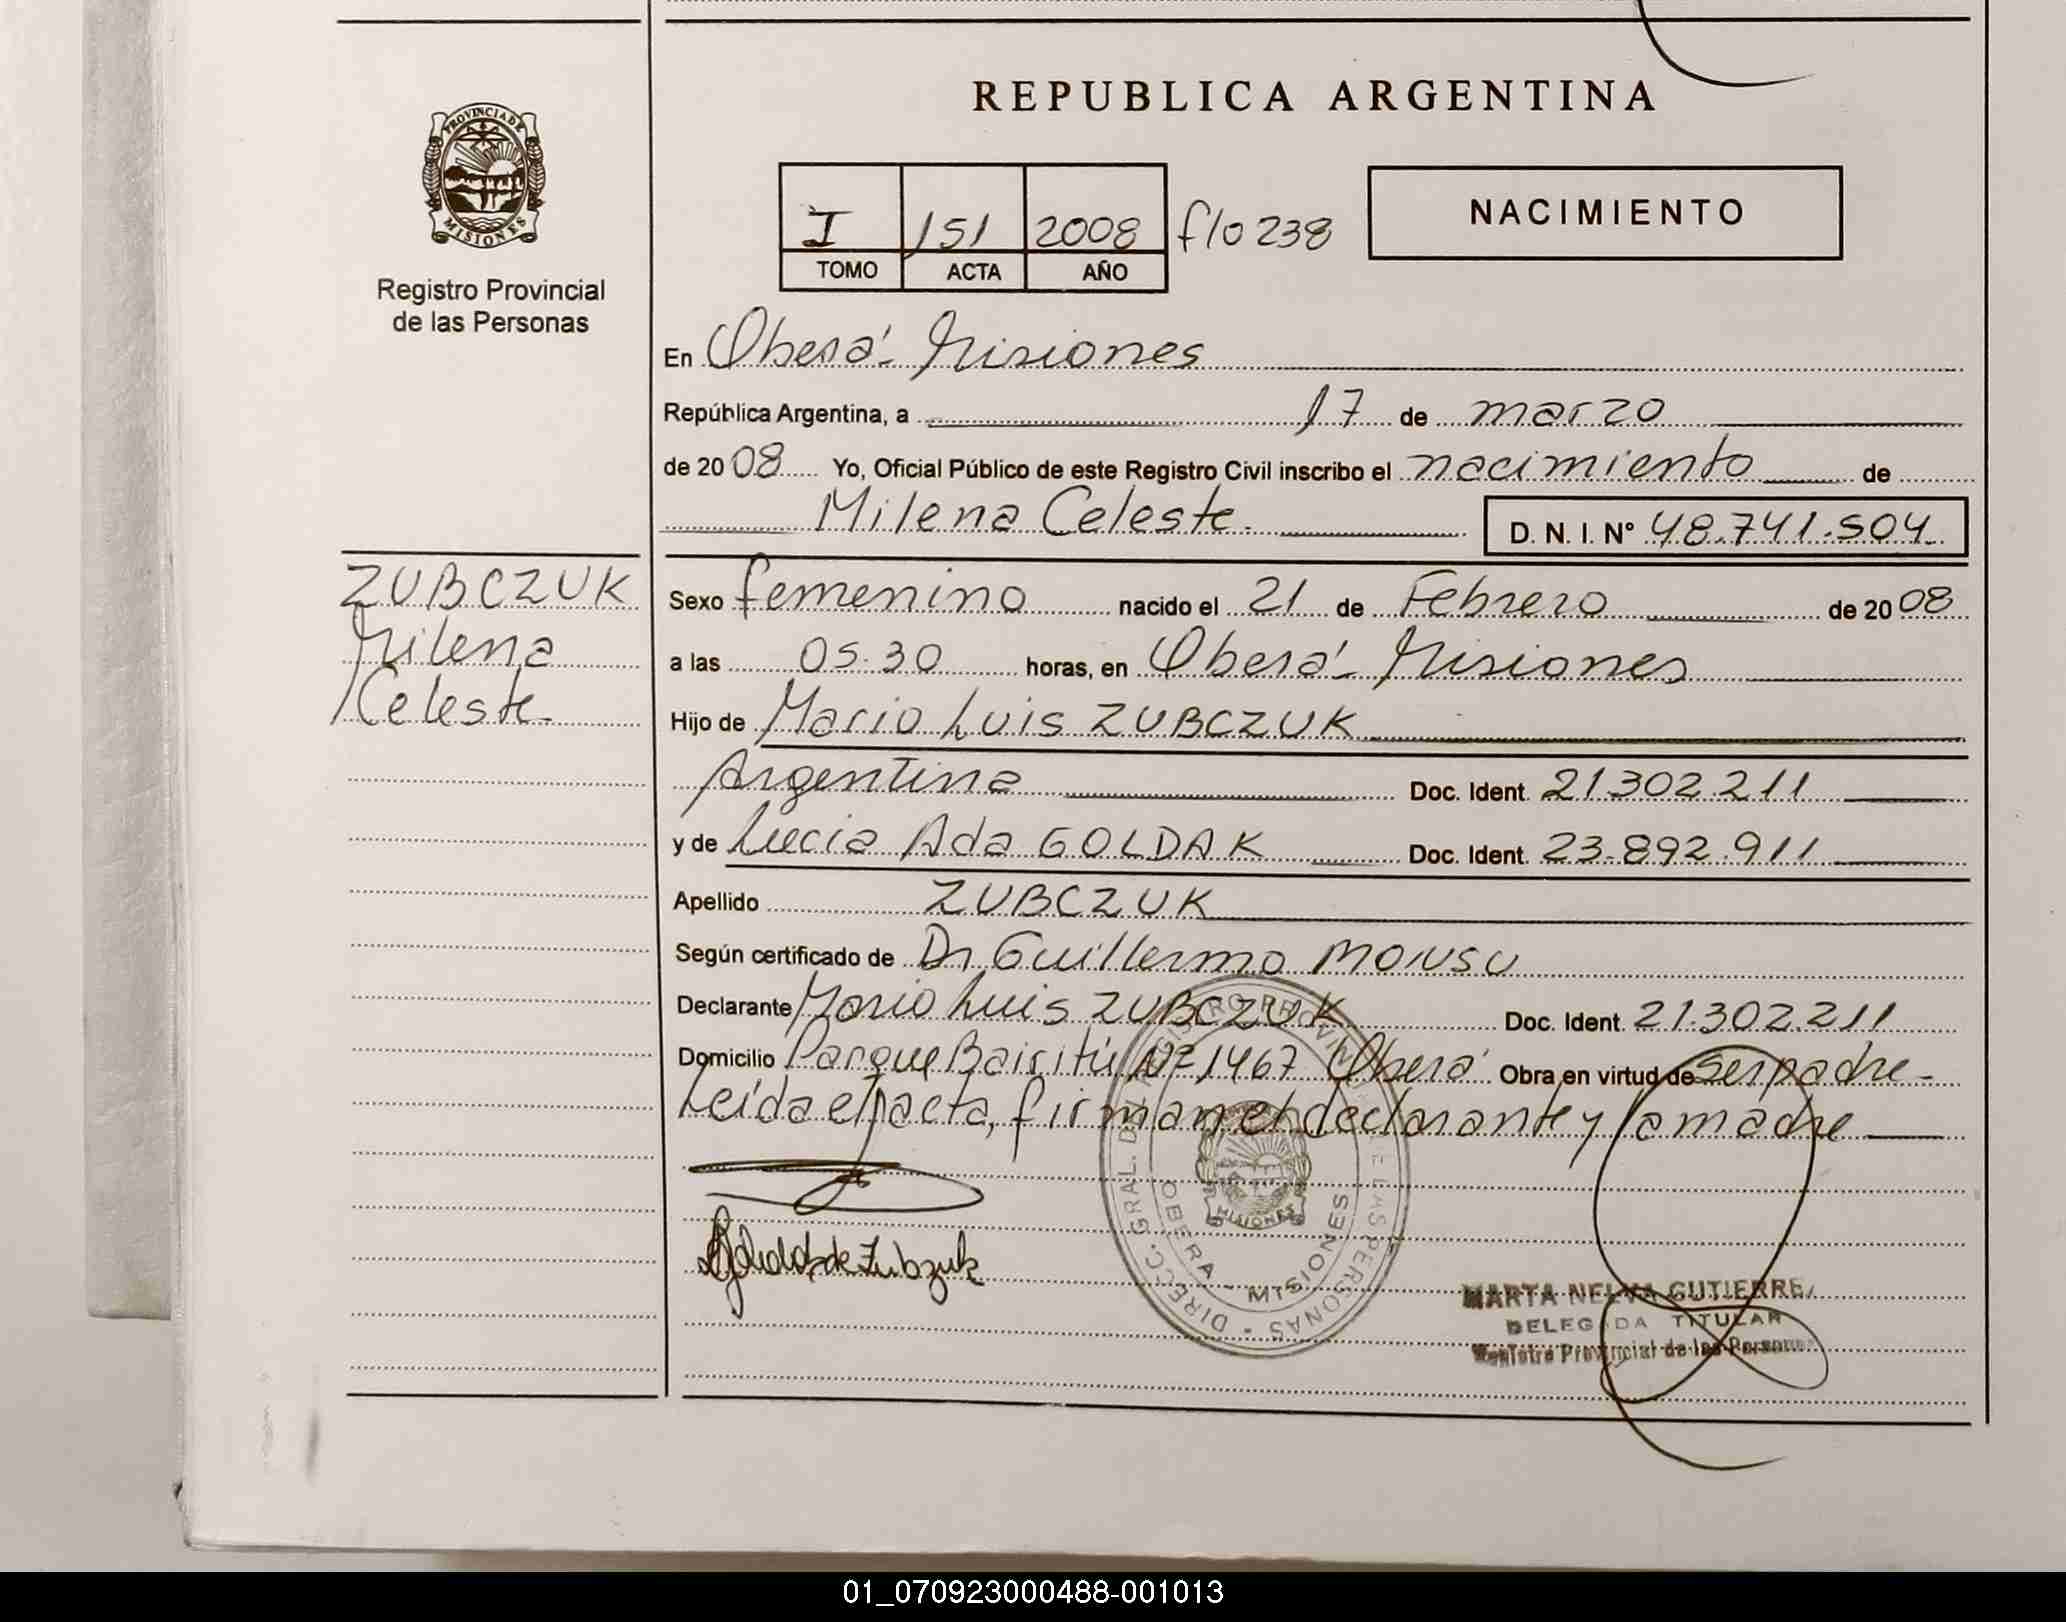 REPUBLICA ARGENTINA
PROVINCIA DE
MISIONES
Registro Provincial
de las Personas
I 151 2008 f/o 238
TOMO ACTA AÑO
NACIMIENTO
En Oberá - Misiones
República Argentina, a 17 de marzo
de 20 08 Yo, Oficial Público de este Registro Civil inscribo el nacimiento de
Milena Celeste.
D. N. I. N° 48.741.504
ZUBCZUK
Milena
Celeste.
Sexo femenino nacido el 21 de Febrero de 20 08
a las 05.30 horas, en Oberá - Misiones
Hijo de Mario Luis ZUBCZUK
Argentina Doc. Ident. 21.302.211
y de Lucia Ada GOLDAK Doc. Ident. 23.892.911
Apellido ZUBCZUK
Según certificado de Dr Guillermo
Declarante Mario Luis ZUBCZUK Doc. Ident. 21.302.211
Domicilio Parque Bairitú Nº 1467 Oberá Obra en virtud de ser padre -
Leída el acta, firman el declarante y la madre
DIRECC. GRAL. DEL REGISTRO PROVINCIAL DE LAS PERSONAS
OBERA - MISIONES
MISIONES
de Zubczuk
MARTA NELVA GUTIERREZ
DELEGADA TITULAR
Registro Provincial de las Personas
01_070923000488-001013